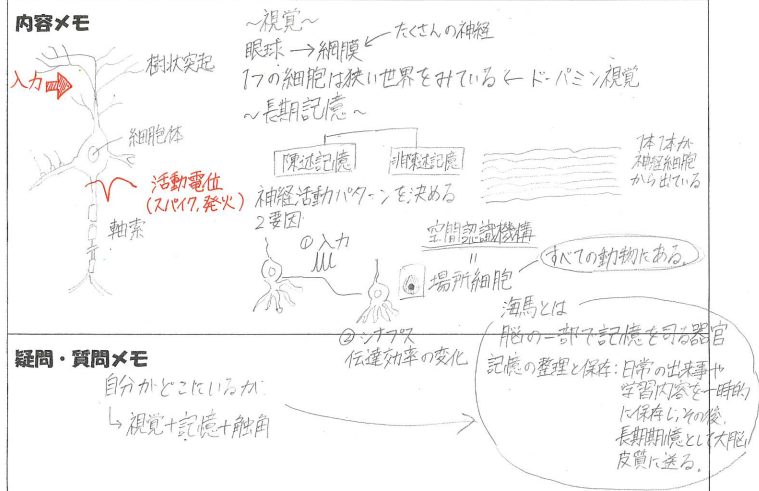 内容メモ
入力
樹状突起
細胞体
活動電位
(スパイク, 発火)
軸索
〜視覚〜
眼球→網膜←たくさんの神経
1つの細胞は狭い世界をみている←ドーパミン視覚
〜長期記憶〜
陳述記憶
非陳述記憶
1本1本が
神経細胞
から出ている
神経活動パターンを決める
2要因
①入力
②シナプス
伝達効率の変化
空間認識機構
=
場所細胞
すべての動物にある。
海馬とは
脳の一部で記憶を司る器官
記憶の整理と保存:日常の出来事や
学習内容を一時的
に保存し、その後、
長期期憶として大脳
皮質に送る。
疑問・質問メモ
自分がどこにいるか
↳視覚+記憶+触角